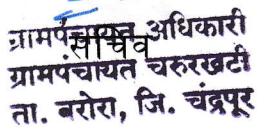 ग्रामपंचायत अधिकारी
सचिव
ग्रामपंचायत चरुरखटी
ता. वरोरा, जि. चंद्रपूर